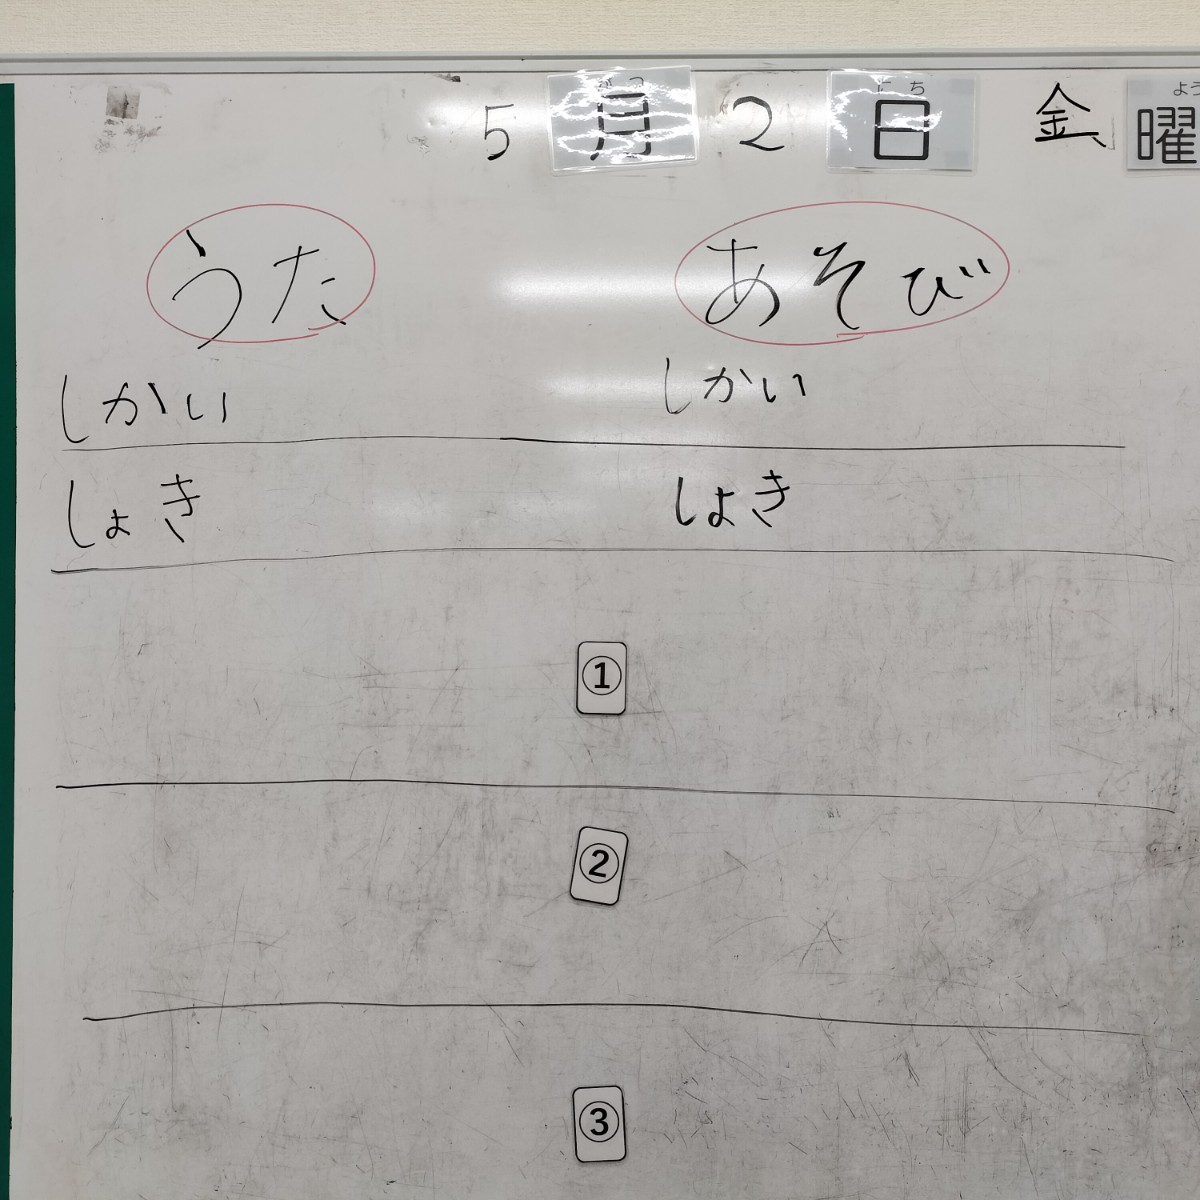 5月2日 金曜
がつ にち よう
うた あそび
しかい しかい
しょき しょき
①
②
③